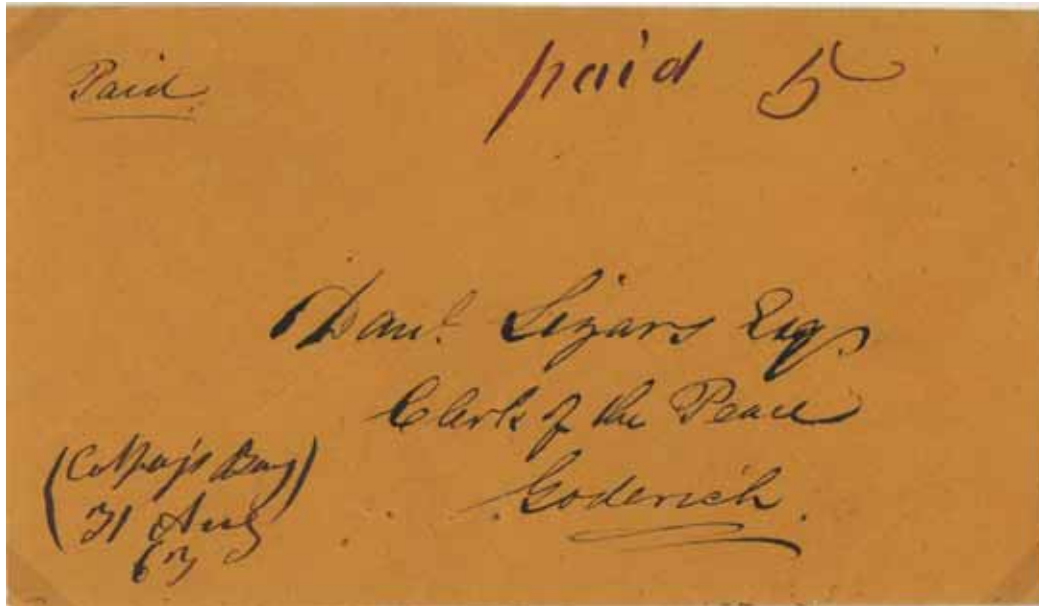 Paid
paid 5
Danl. Lizars Esq.
Clerk of the Peace
Goderich.
(Colpoy's Bay)
31 Aug